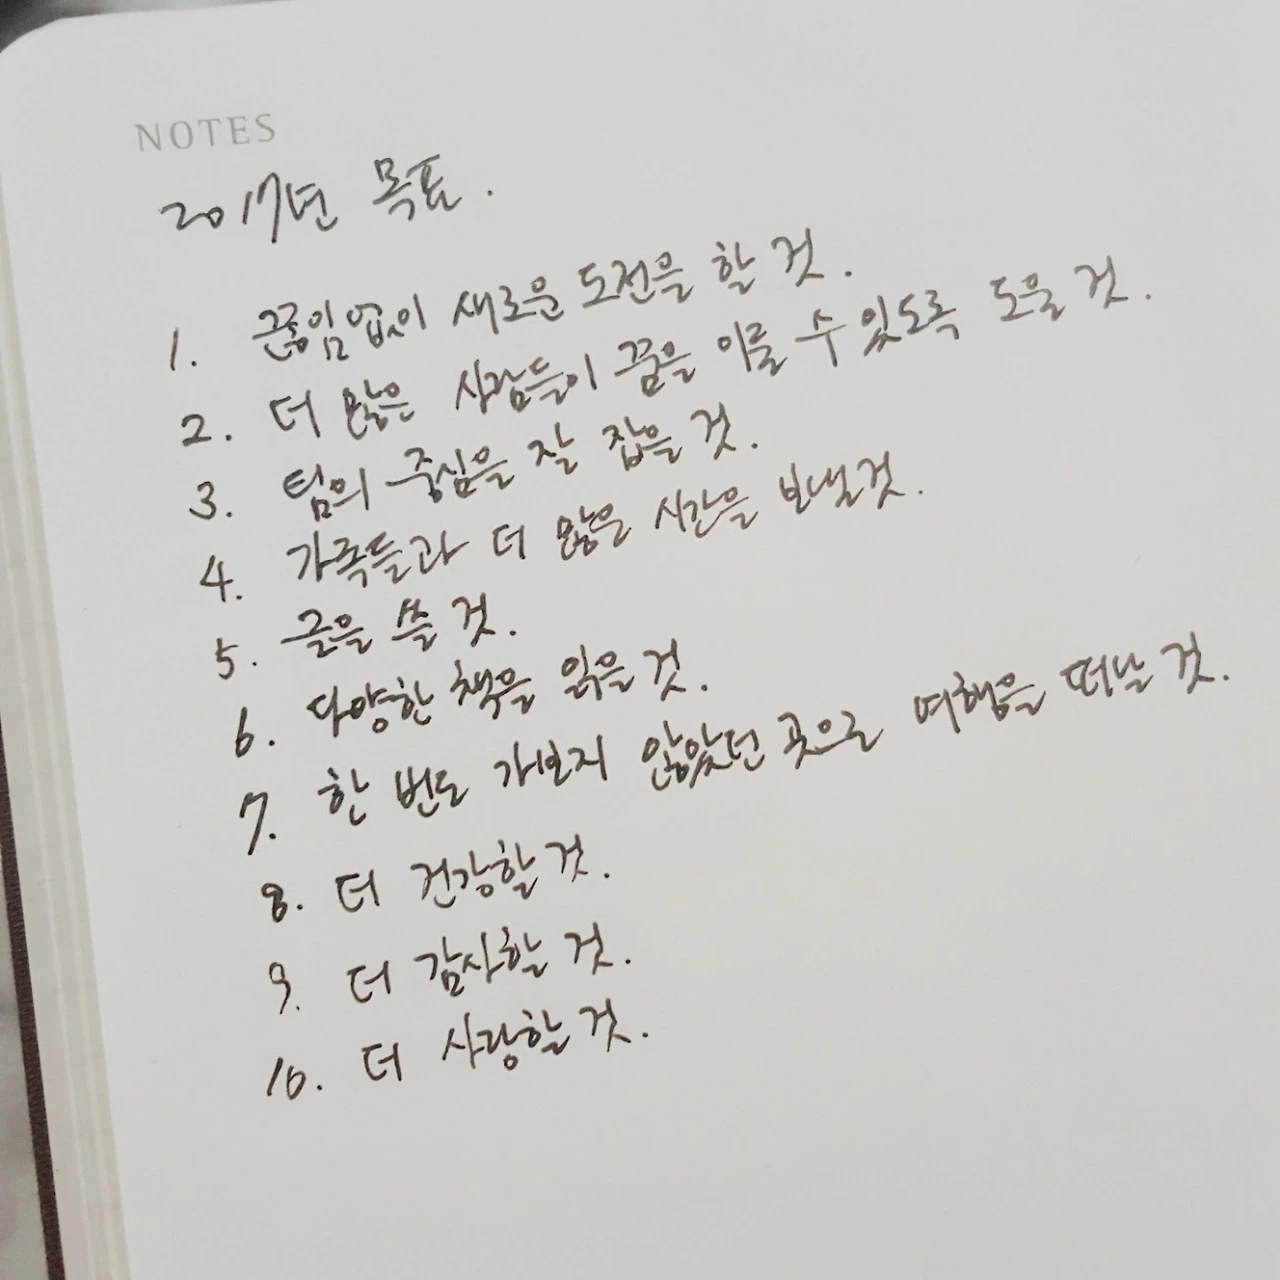 NOTES
2017년 목표.
1. 끊임없이 새로운 도전을 할 것.
2. 더 많은 사람들이 꿈을 이룰 수 있도록 도울 것.
3. 팀의 중심을 잘 잡을 것.
4. 가족들과 더 많은 시간을 보낼것.
5. 글을 쓸 것.
6. 다양한 책을 읽을 것.
7. 한 번도 가보지 않았던 곳으로 여행을 떠날 것.
8. 더 건강할 것.
9. 더 감사할 것.
10. 더 사랑할 것.